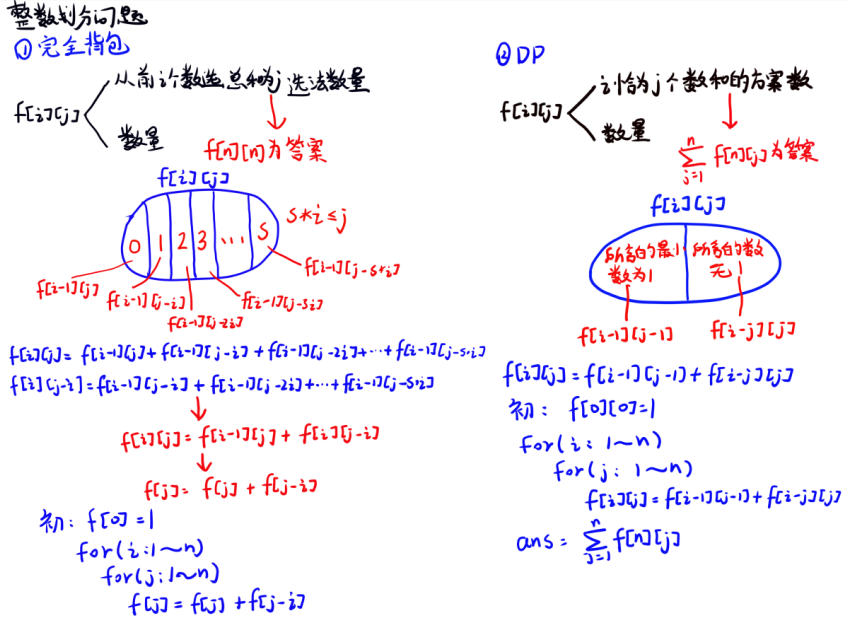 整数划分问题
①完全背包
f[i][j]
从前i个数选总和为j选法数量
数量
f[n][n]为答案
f[i][j]
0 1 2 3 ... s
s*i≤j
f[i-1][j]
f[i-1][j-i]
f[i-1][j-2i]
f[i-1][j-3i]
f[i-1][j-s*i]
f[i][j]= f[i-1][j]+f[i-1][j-i]+f[i-1][j-2i]+...+f[i-1][j-s*i]
f[i][j-i]=f[i-1][j-i]+f[i-1][j-2i]+...+f[i-1][j-s*i]
f[i][j]=f[i-1][j]+f[i][j-i]
f[j]=f[j]+f[j-i]
初: f[0]=1
for(i:1~n)
for(j:1~n)
f[j]=f[j]+f[j-i]
②DP
f[i][j]
i恰为j个数和的方案数
数量
n
∑ f[n][j]为答案
j=1
f[i][j]
所有的最小
数为1
所有的数
无1
f[i-1][j-1]
f[i-j][j]
f[i][j]=f[i-1][j-1]+f[i-j][j]
初: f[0][0]=1
for(i: 1~n)
for(j: 1~n)
f[i][j]=f[i-1][j-1]+f[i-j][j]
n
ans= ∑ f[n][j]
j=1